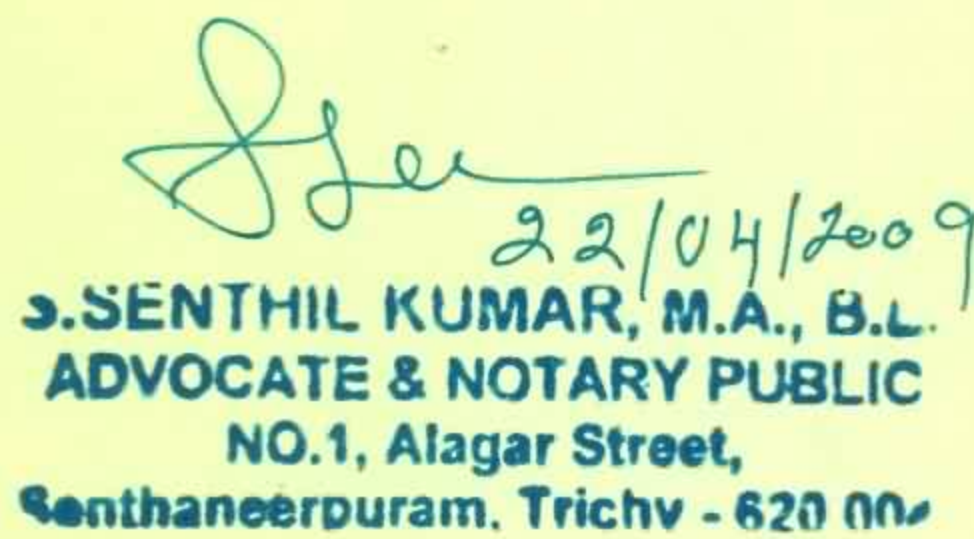 22/04/2009
S.SENTHIL KUMAR, M.A., B.L.
ADVOCATE & NOTARY PUBLIC
NO.1, Alagar Street,
Senthaneerpuram, Trichy - 620